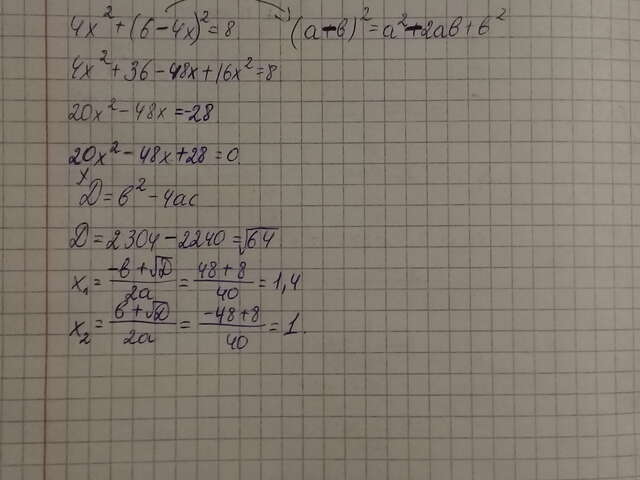 4x² + (6 - 4x)² = 8 (a - b)² = a² - 2ab + b²
4x² + 36 - 48x + 16x² = 8
20x² - 48x = -28
20x² - 48x + 28 = 0
D = b² - 4ac
D = 2304 - 2240 = √64
x₁ = (-b + √D)/2a = (48 + 8)/40 = 1,4
x₂ = (b + √D)/2a = (-48 + 8)/40 = 1.